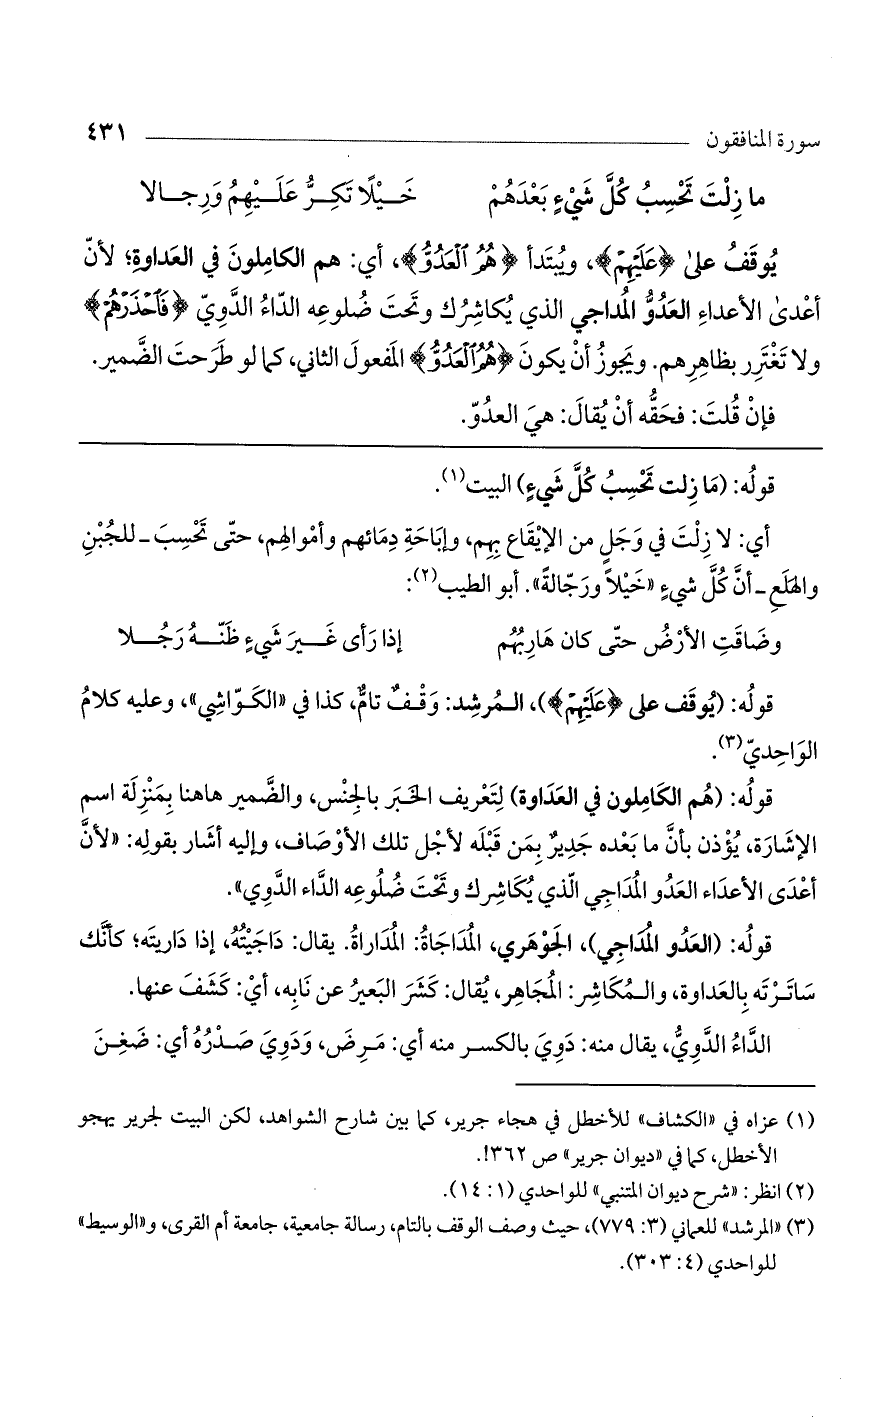 سورة المنافقون ٤٣١
ما زِلْتَ تَحْسِبُ كُلَّ شَيْءٍ بَعْدَهُمْ خَيْلًا تَكِرُّ عَلَيْهِمُ وَرِجالا
يُوقَفُ على ﴿عَلَيْهِمْ﴾، ويُبتَدأ ﴿هُمُ الْعَدُوُّ﴾، أي: هم الكامِلونَ في العَداوةِ؛ لأنّ
أعْدىٰ الأعداءِ العَدُوُّ المُداجي الذي يُكاشِرُك وتَحتَ ضُلوعِه الدّاءُ الدَّوِيّ ﴿فَاحْذَرْهُمْ﴾
ولا تَغْتَرِر بظاهِرِهم. ويَجوزُ أنْ يكونَ ﴿هُمُ الْعَدُوُّ﴾ المَفعولَ الثاني، كما لو طَرَحتَ الضَّمير.
فإنْ قُلتَ: فحَقُّه أنْ يُقالَ: هيَ العدُوّ.
قولُه: (مَا زِلت تَحْسِبُ كُلَّ شَيءٍ) البيت(١).
أي: لا زِلْتَ في وَجَلٍ من الإيْقَاعِ بِهِم، وإبَاحَةِ دِمَائهم وأمْوالهِم، حتّى تَحْسِبَ ـ للجُبْنِ
والهَلَعِ ـ أنَّ كُلَّ شيءٍ «خَيْلاً ورَجّالةً». أبو الطيب(٢):
وضَاقَتِ الأرْضُ حتّى كان هَارِبُهُم إذا رَأى غَيرَ شَيءٍ ظَنَّهُ رَجُلا
قولُه: (يُوقَف على ﴿عَلَيْهِمْ﴾)، المُرشِد: وَقْفٌ تامٌّ، كذا في «الكَوّاشِي»، وعليه كلامُ
الوَاحِديّ(٣).
قولُه: (هُم الكَامِلون في العَدَاوة) لِتَعْريف الخَبَر بالجِنْس، والضَّمير هاهنا بِمَنْزِلَة اسم
الإشارَة، يُؤْذن بأنَّ ما بَعْده جَدِيرٌ بِمَن قَبْلَه لأجْل تلك الأوْصَاف، وإليه أشَار بقولِه: «لأنَّ
أعْدَى الأعدَاء العَدُو المُدَاجِي الّذي يُكَاشِرك وتَحْتَ ضُلُوعِه الدَّاء الدَّوِي».
قولُه: (العَدُو المُدَاجِي)، الجَوْهَري، المُدَاجَاةُ: المُدَاراةُ. يقال: دَاجَيْتُهُ، إذا دَاريتَه؛ كأنَّك
سَاتَرْتَه بِالعَداوة، والمُكَاشِر: المُجَاهِر، يُقال: كَشَرَ البَعيرُ عن نَابِه، أيْ: كَشَفَ عنها.
الدَّاءُ الدَّوِيُّ، يقال منه: دَوِيَ بالكسر منه أي: مَرِضَ، وَدَوِيَ صَدْرُهُ أي: ضَغِنَ
(١) عزاه في «الكشاف» للأخطل في هجاء جرير، كما بين شارح الشواهد، لكن البيت لجرير يهجو
الأخطل، كما في «ديوان جرير» ص ٣٦٢!.
(٢) انظر: «شرح ديوان المتنبي» للواحدي (١: ١٤).
(٣) «المرشد» للعماني (٣: ٧٧٩)، حيث وصف الوقف بالتام، رسالة جامعية، جامعة أم القرى، و«الوسيط»
للواحدي (٤: ٣٠٣).